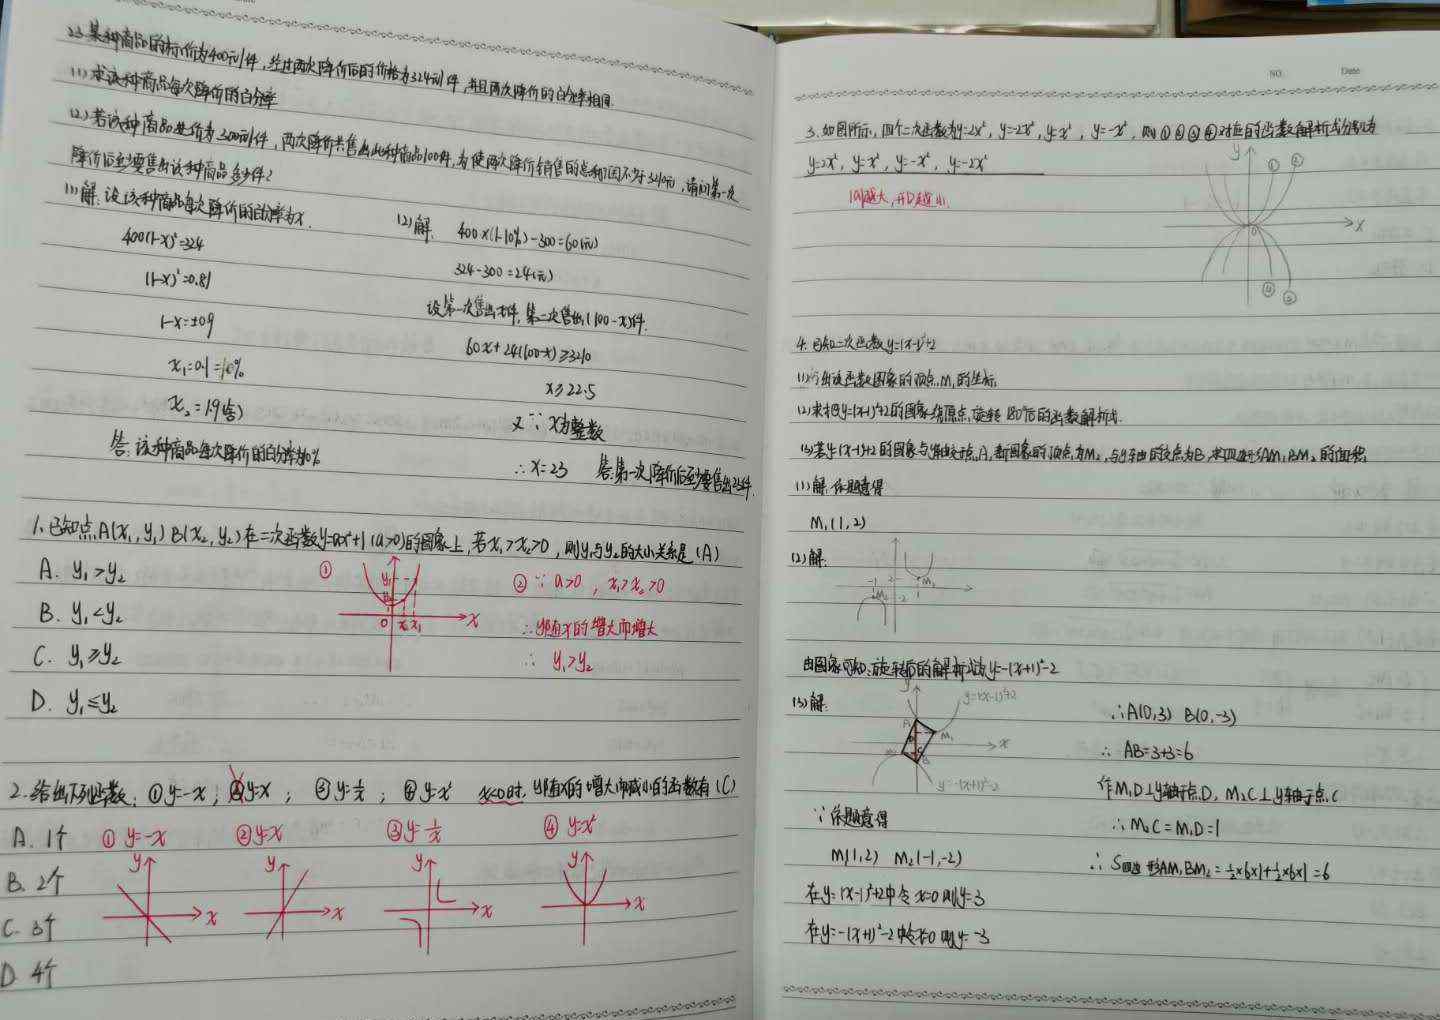 23.某种商品的标价为400元/件,经过两次降价后的价格为324元/件,并且两次降价的百分率相同.
(1)求该种商品每次降价的百分率
(2)若该种商品进价为300元/件,两次降价共售出此种商品100件,为使两次降价销售的总利润不少于3210元,请问第一次
降价后至少要售出该种商品多少件?
(1)解:设该种商品每次降价的百分率为x.
400(1-x)²=324
(1-x)²=0.81
1-x=±0.9
x₁=0.1=10%
x₂=1.9(舍)
答:该种商品每次降价的百分率为10%
(2)解: 400×(1-10%)-300=60(元)
324-300=24(元)
设第一次售出x件,第二次售出(100-x)件.
60x+24(100-x)≥3210
x≥22.5
又∵x为整数
∴x=23 答:第一次降价后至少要售出23件.
1.已知点A(x₁,y₁) B(x₂,y₂)在二次函数y=ax²+1(a>0)的图象上,若x₁>x₂>0,则y₁与y₂的大小关系是(A)
A. y₁>y₂
B. y₁<y₂
C. y₁≥y₂
D. y₁≤y₂
①
y₁
y₂
0 x₂ x₁ x
② ∵a>0,x₁>x₂>0
∴y随x的增大而增大
∴ y₁>y₂
2.给出下列函数:①y=-x;②y=x;③y=1/x;④y=x² x<0时,y随x的增大而减小的函数有(C)
A. 1个
B. 2个
C. 3个
D. 4个
① y=-x ②y=x ③y=1/x ④ y=x²
y x y x y x y x
NO. Date
3.如图所示,四个二次函数为y=2x²,y=-2x²,y=x²,y=-x²,则①②③④对应的函数解析式分别为
y=2x²,y=x²,y=-x²,y=-2x²
|a|越大,开口越小.
y ① ②
0 x
④ ③
4.已知二次函数y=(x-1)²+2
(1)写出该函数图象的顶点M₁的坐标.
(2)求把y=(x-1)²+2的图象绕原点旋转180°后的函数解析式.
(3)若y=(x-1)²+2的图象与y轴交于点A,新图象的顶点为M₂,与y轴的交点为B,求四边形AM₁BM₂的面积.
(1)解:依题意得
M₁(1,2)
(2)解:
-1 2 M₁
M₂ -2 1
由图象可知:旋转后的解析式为y=-(x+1)²-2
(3)解:
y y=(x-1)²+2
A
D M₁
x
M₂ C
B
y=-(x+1)²-2
∵依题意得
M₁(1,2) M₂(-1,-2)
在y=(x-1)²+2中令x=0则y=3
在y=-(x+1)²-2中令x=0则y=-3
∴A(0,3) B(0,-3)
∴AB=3+3=6
作M₁D⊥y轴于点D,M₂C⊥y轴于点C
∴M₂C=M₁D=1
∴S四边形AM₁BM₂=½×6×1+½×6×1=6